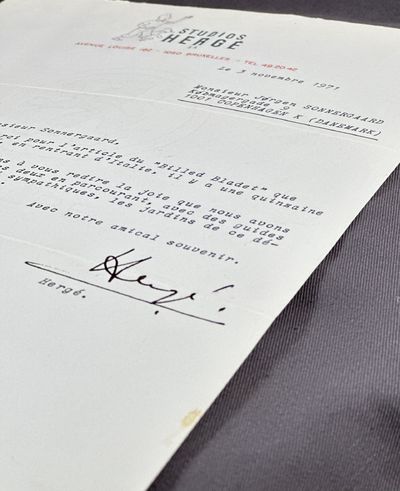 STUDIOS
HERGÉ
AVENUE LOUISE 162 - 1050 BRUXELLES - TEL 49.20.42
Le 3 novembre 1971
Monsieur Jørgen SONNERGAARD
Købmagergade 9
1007 COPENHAGEN K (DANEMARK)
sieur Sonnergaard,
rci pour l'article du "Billed Bladet" que
, en rentrant d'Italie, il y a une quinzaine
ns à vous redire la joie que nous avons
s deux en parcourant, avec des guides
sympathiques, les Jardins de ce dé-
Avec notre amical souvenir.
Hergé.
Hergé.